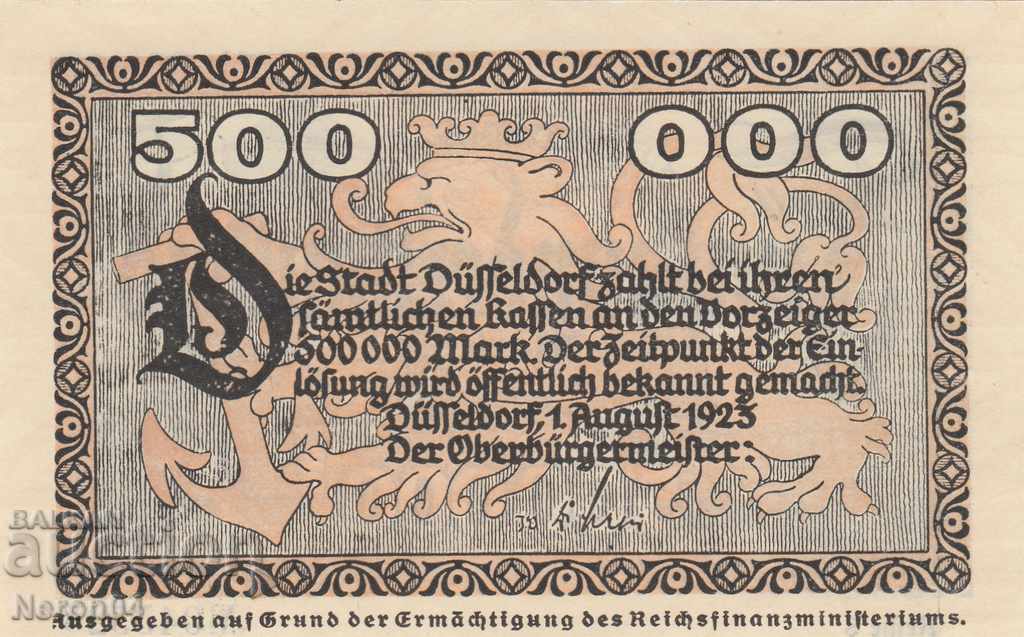 500 000
Die Stadt Düsseldorf zahlt bei ihren
sämtlichen Kassen an den Vorzeiger
500 000 Mark. Der Zeitpunkt der Ein-
lösung wird öffentlich bekannt gemacht.
Düsseldorf, 1. August 1923
Der Oberbürgermeister:
BALKAN
auction
Neron04
Ausgegeben auf Grund der Ermächtigung des Reichsfinanzministeriums.